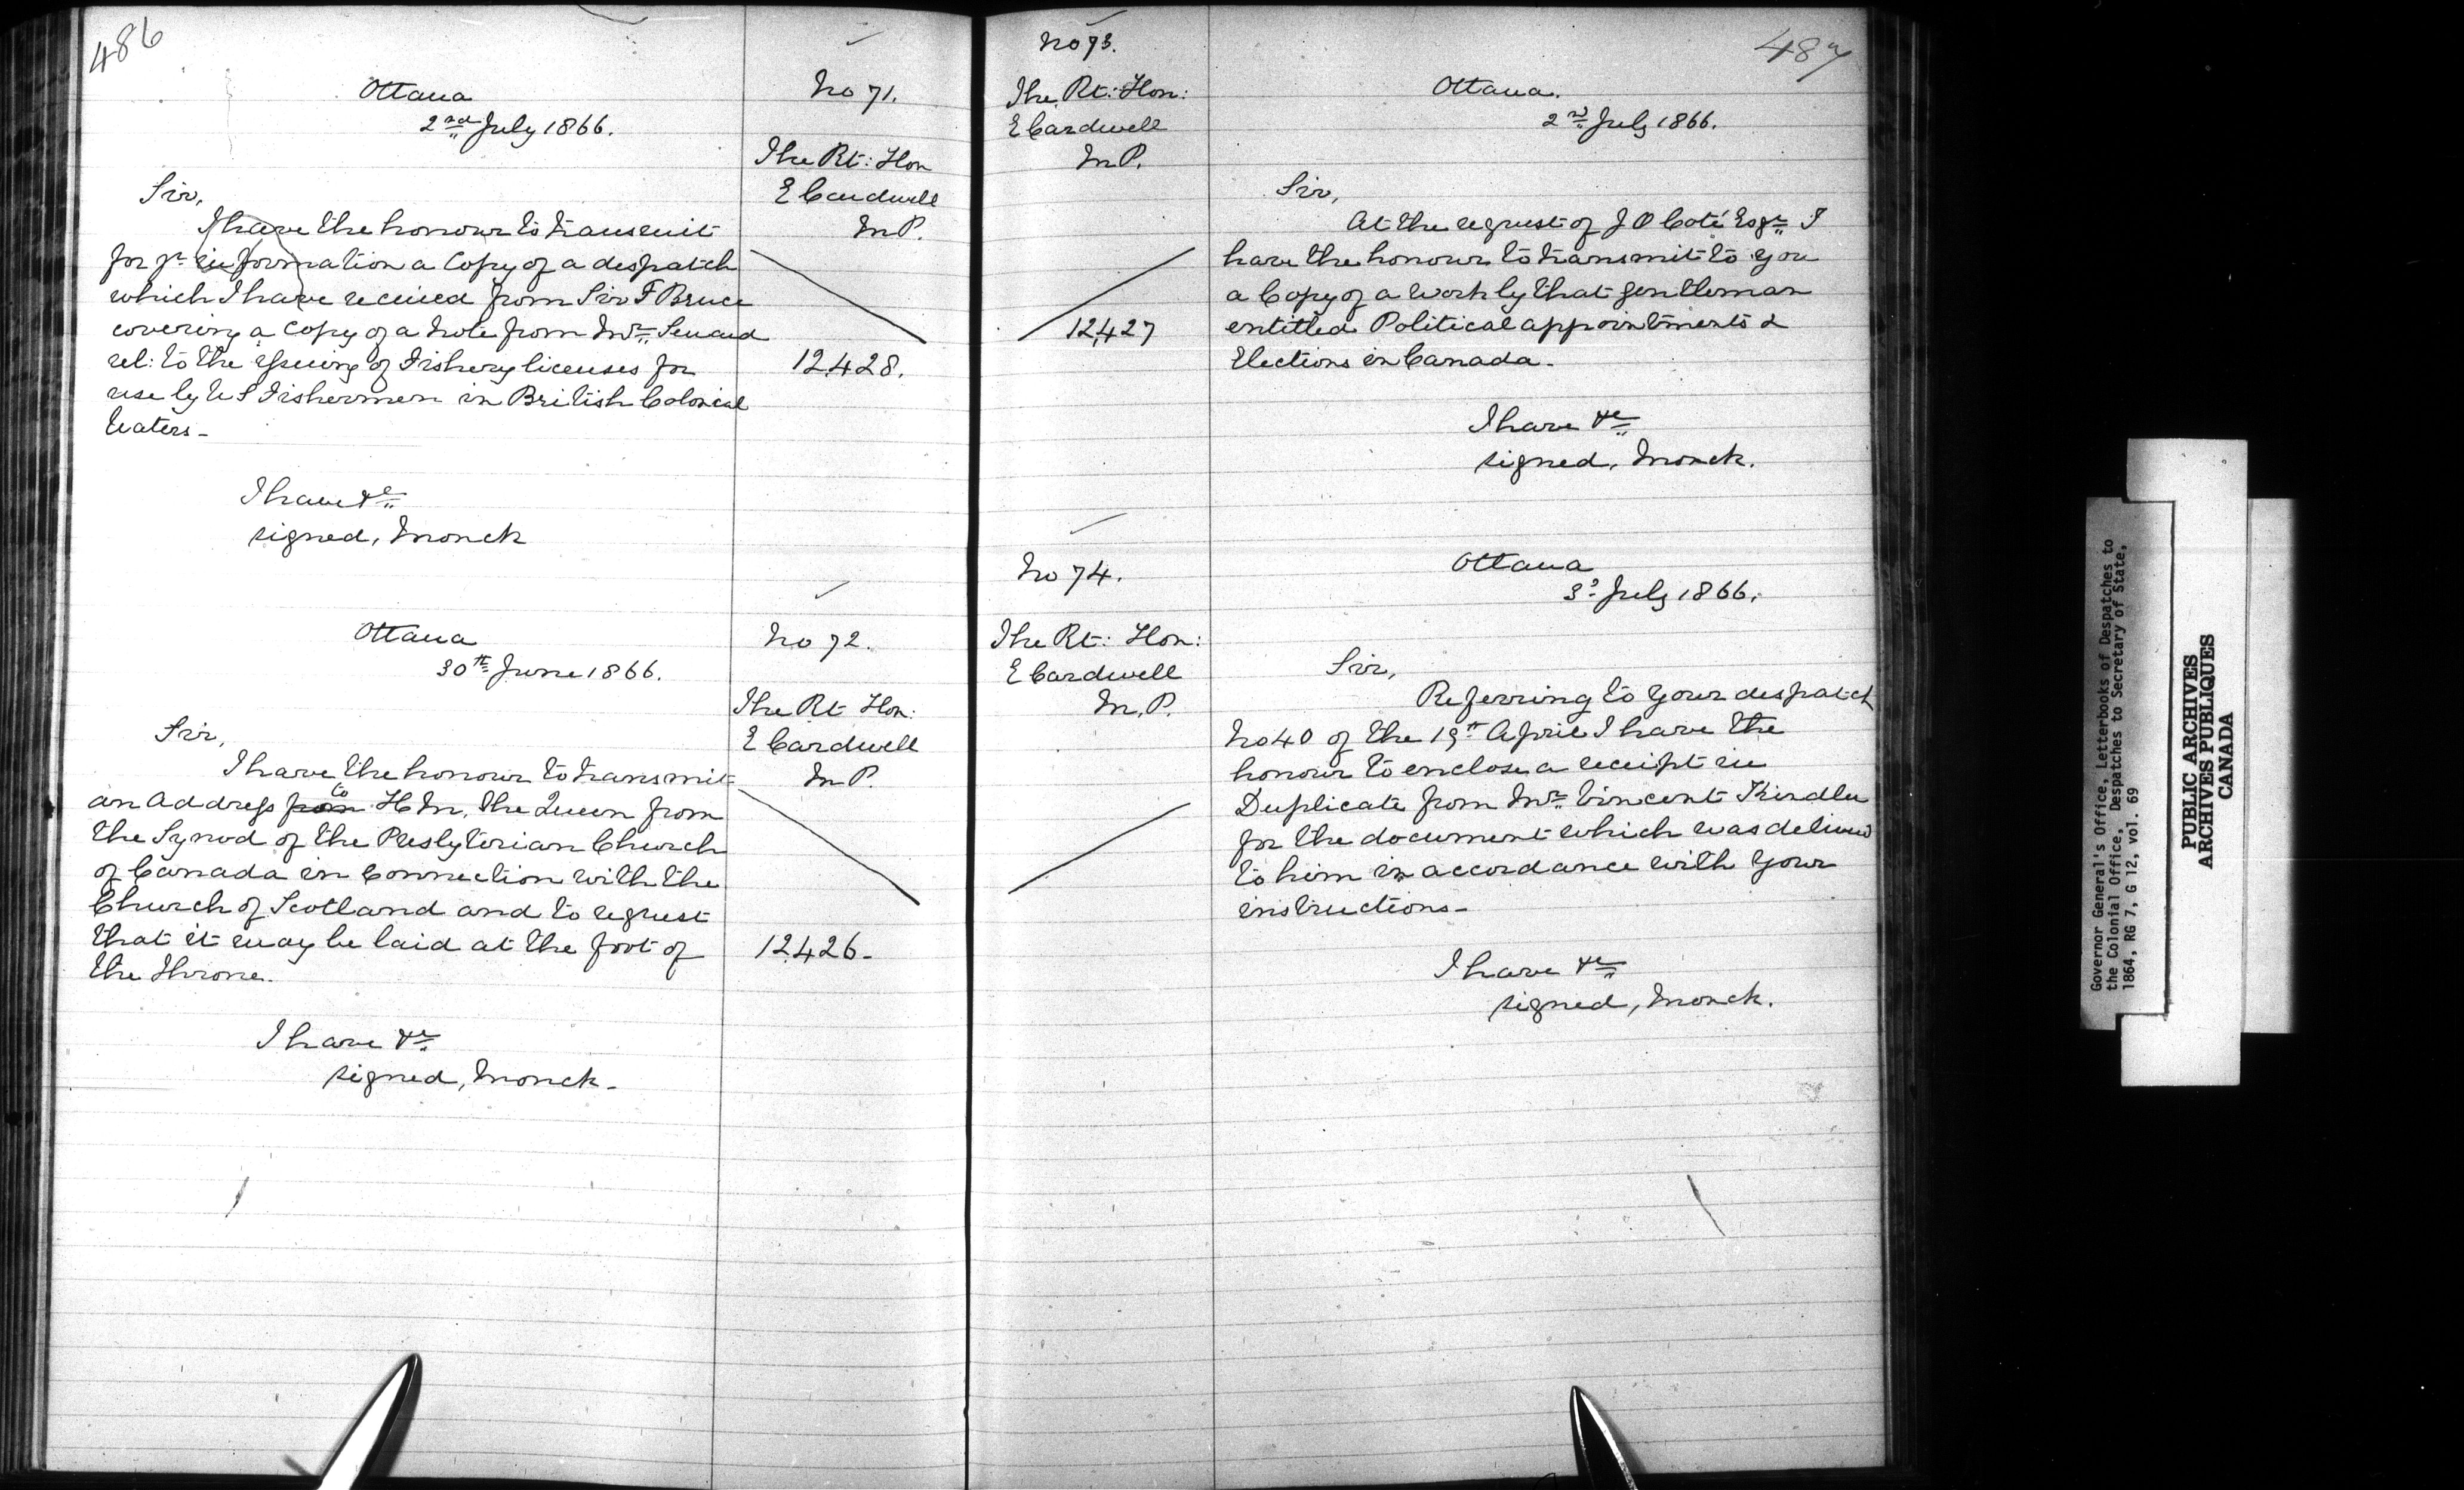 486
Ottawa
2nd July 1866.
No 71.
The Rt: Hon
E Cardwell
M P.
Sir,
I have the honour to transmit
for yr information a Copy of a despatch
which I have received from Sir F Bruce
covering a copy of a note from Mr Seward
rel: to the issuing of Fishery licenses for
use by U S Fishermen in British Colonial
Waters-
12428.
I have &c
signed, Monck
Ottawa
30th June 1866.
No 72.
The Rt Hon:
E Cardwell
M P.
Sir,
I have the honour to transmit
an address from to H M, the Queen from
the Synod of the Presbyterian Church
of Canada in Connection with the
Church of Scotland and to request
that it may be laid at the foot of
the throne.
12426-
I have &c
signed, Monck-
487
No 73.
The Rt: Hon:
E Cardwell
M P.
Ottawa.
2d July 1866.
Sir,
At the request of J O Coté Esqr I
have the honour to transmit to you
a Copy of a work by that gentleman
entitled Political appointments &
Elections in Canada-
12427
I have &c
signed, Monck.
No 74.
The Rt: Hon:
E Cardwell
M. P.
Ottawa
3d July 1866.
Sir,
Referring to your despatch
No 40 of the 19th April I have the
honour to enclose a receipt in
Duplicate from Mr Vincent
for the document which was delivered
to him in accordance with your
instructions-
I have &c
signed, Monck.
Governor General's Office, Letterbooks of Despatches to
the Colonial Office, Despatches to Secretary of State,
1864, RG 7, G 12, vol. 69
PUBLIC ARCHIVES
ARCHIVES PUBLIQUES
CANADA